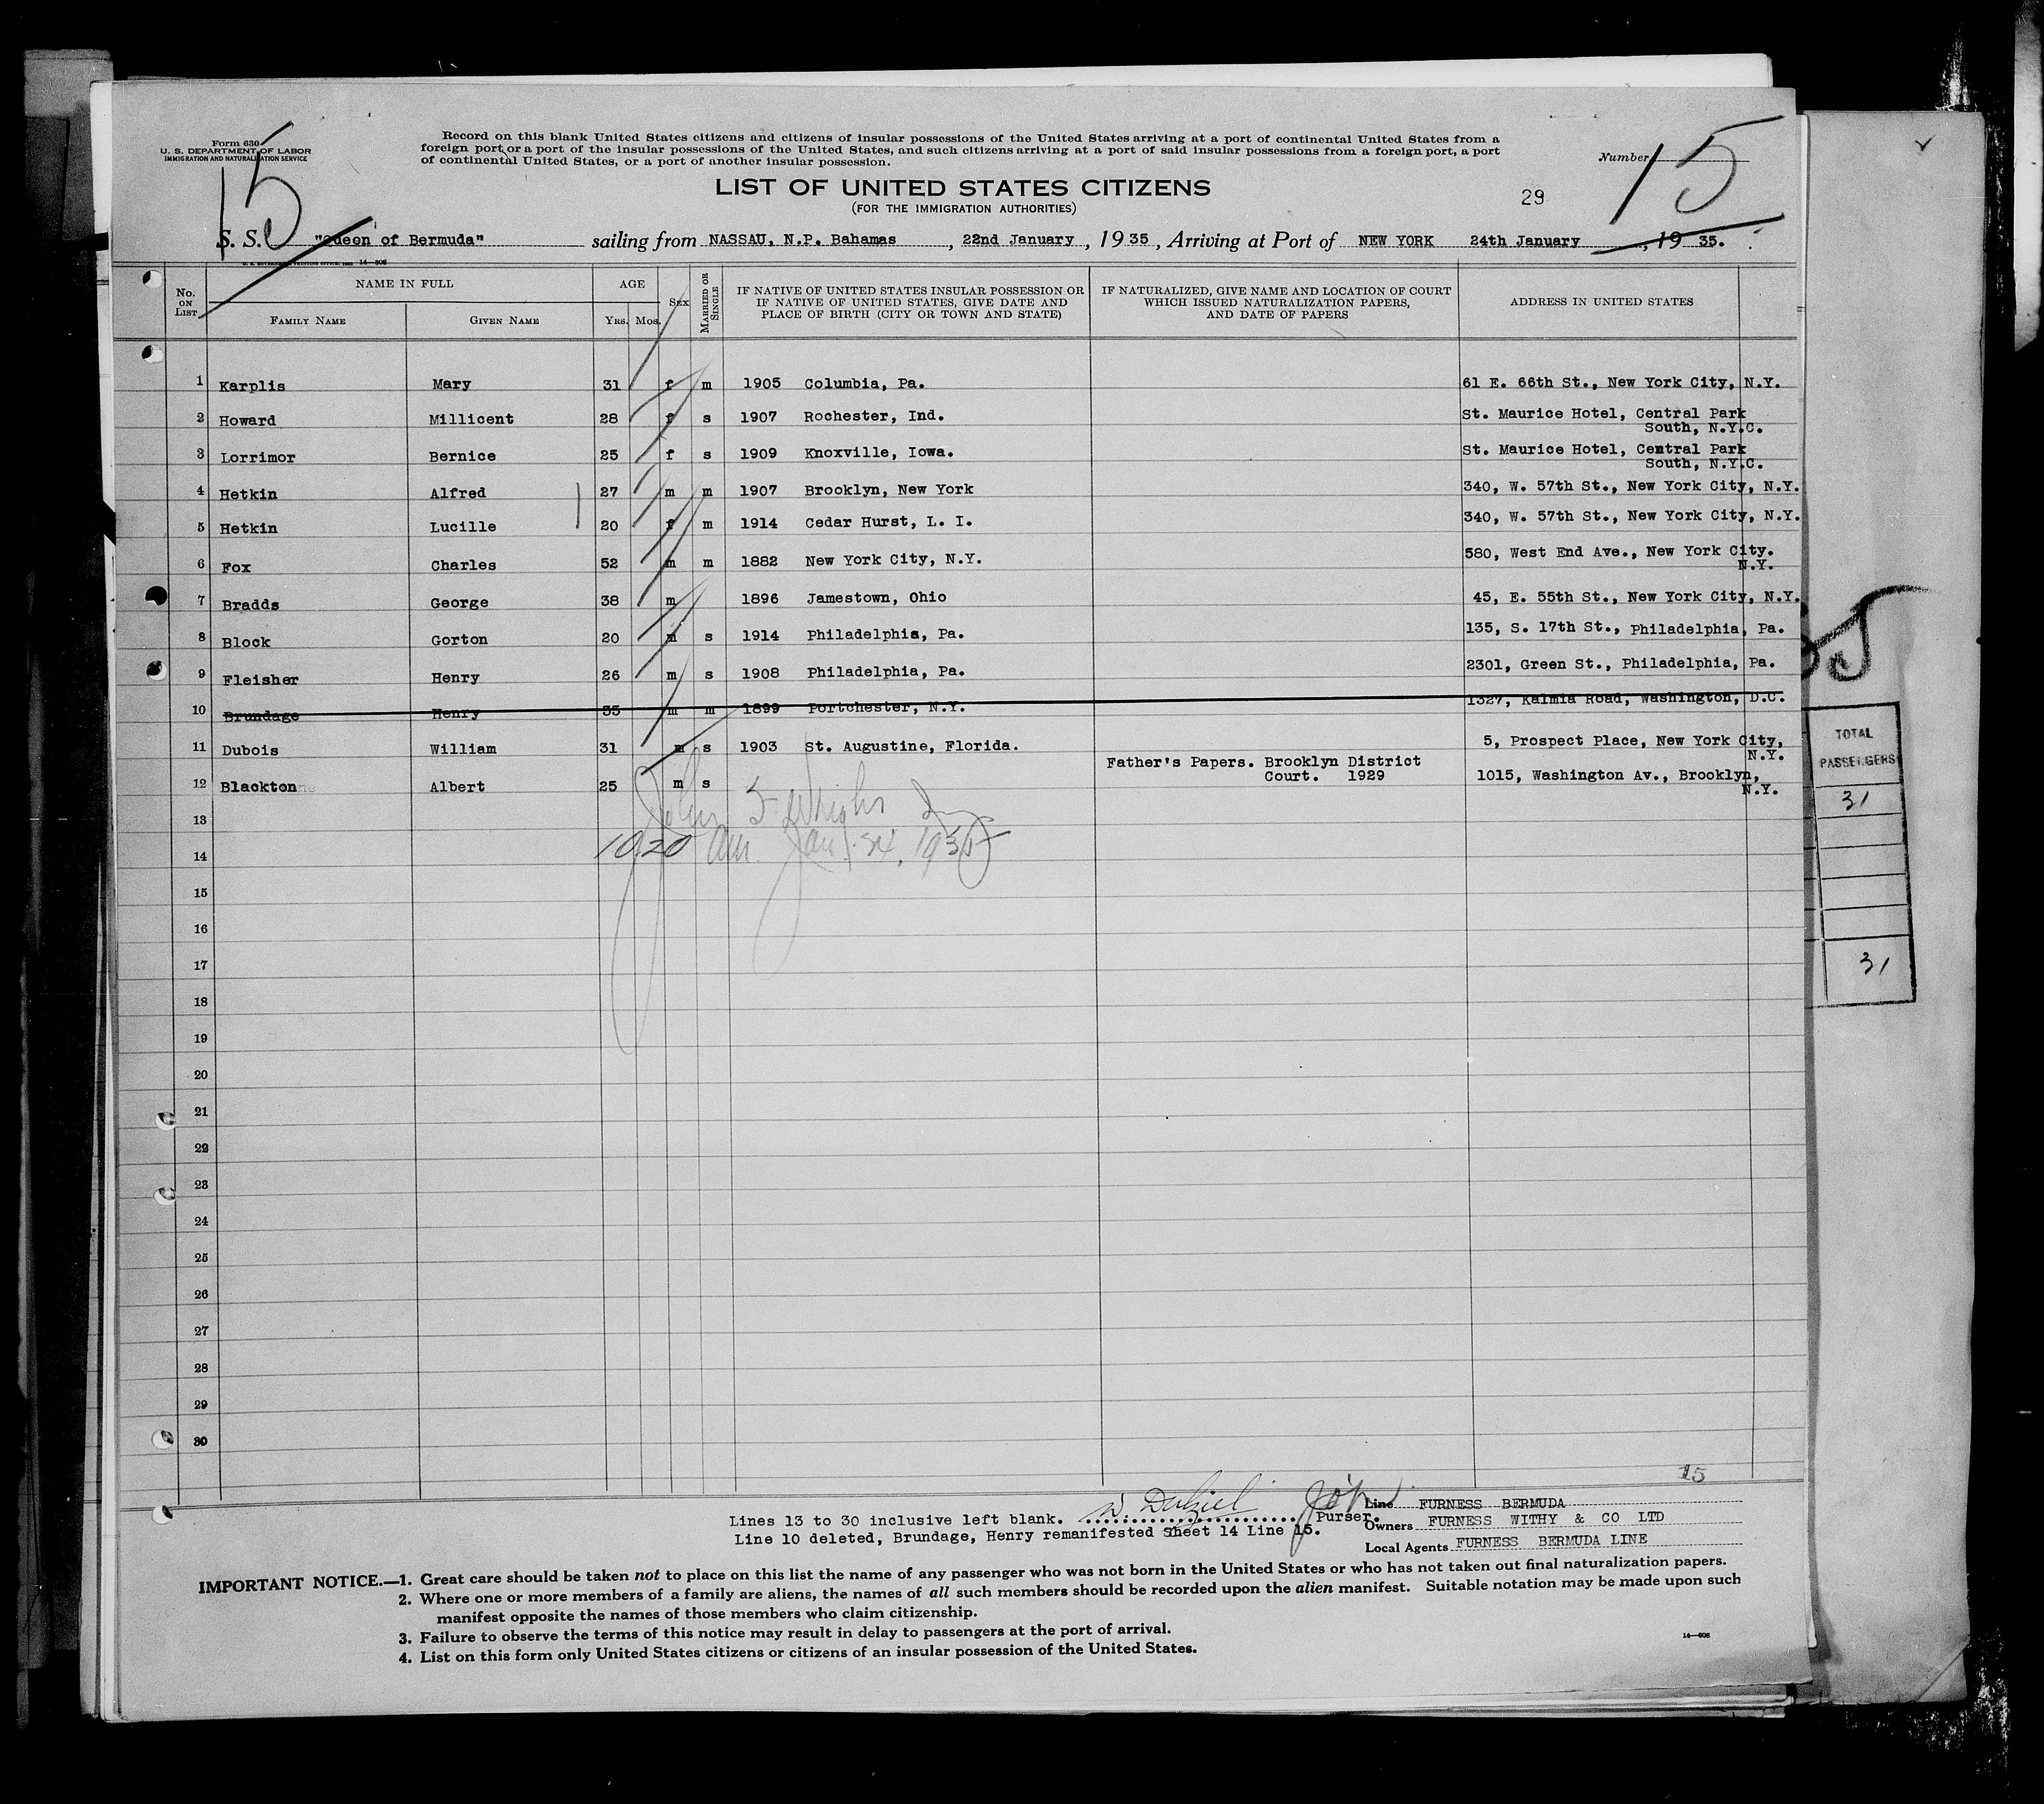 Form 630
U. S. DEPARTMENT OF LABOR
IMMIGRATION AND NATURALIZATION SERVICE
Record on this blank United States citizens and citizens of insular possessions of the United States arriving at a port of continental United States from a
foreign port or a port of the insular possessions of the United States, and such citizens arriving at a port of said insular possessions from a foreign port, a port
of continental United States, or a port of another insular possession.
Number 15
15
LIST OF UNITED STATES CITIZENS
(FOR THE IMMIGRATION AUTHORITIES)
29
S. S. "Queen of Bermuda" sailing from NASSAU, N.P. Bahamas, 22nd January, 1935, Arriving at Port of NEW YORK 24th January, 19 35.
No. ON LIST NAME IN FULL AGE SEX MARRIED OR SINGLE IF NATIVE OF UNITED STATES INSULAR POSSESSION OR IF NATIVE OF UNITED STATES, GIVE DATE AND PLACE OF BIRTH (CITY OR TOWN AND STATE) IF NATURALIZED, GIVE NAME AND LOCATION OF COURT WHICH ISSUED NATURALIZATION PAPERS, AND DATE OF PAPERS ADDRESS IN UNITED STATES
FAMILY NAME GIVEN NAME YRS. MOS.
1 Karplis Mary 31 f m 1905 Columbia, Pa. 61 E. 66th St., New York City, N.Y.
2 Howard Millicent 28 f s 1907 Rochester, Ind. St. Maurice Hotel, Central Park
South, N.Y.C.
3 Lorrimor Bernice 25 f s 1909 Knoxville, Iowa. St. Maurice Hotel, Central Park
South, N.Y.C.
4 Hetkin Alfred 27 m m 1907 Brooklyn, New York 340, W. 57th St., New York City, N.Y.
5 Hetkin Lucille 20 f m 1914 Cedar Hurst, L. I. 340, W. 57th St., New York City, N.Y.
6 Fox Charles 52 m m 1882 New York City, N.Y. 580, West End Ave., New York City.
N.Y.
7 Bradds George 38 m 1896 Jamestown, Ohio 45, E. 55th St., New York City, N.Y.
8 Block Gorton 20 m s 1914 Philadelphia, Pa. 135, S. 17th St., Philadelphia, Pa.
9 Fleisher Henry 26 m s 1908 Philadelphia, Pa. 2301, Green St., Philadelphia, Pa.
10 Brundage Henry 35 m m 1899 Portchester, N.Y. 1327, Kalmia Road, Washington, D.C.
11 Dubois William 31 m s 1903 St. Augustine, Florida. 5, Prospect Place, New York City,
N.Y.
12 Blackton Albert 25 m s Father's Papers. Brooklyn District
Court. 1929 1015, Washington Av., Brooklyn,
N.Y.
13
14
1020 am. Jan. 24, 1935
15
16
17
18
19
20
21
22
23
24
25
26
27
28
29
30
15
TOTAL
PASSENGERS
31
31
Lines 13 to 30 inclusive left blank. Purser.
Line 10 deleted, Brundage, Henry remanifested Sheet 14 Line 15.
Line FURNESS BERMUDA
Owners FURNESS WITHY & CO LTD
Local Agents FURNESS BERMUDA LINE
IMPORTANT NOTICE.—1. Great care should be taken not to place on this list the name of any passenger who was not born in the United States or who has not taken out final naturalization papers.
2. Where one or more members of a family are aliens, the names of all such members should be recorded upon the alien manifest. Suitable notation may be made upon such
manifest opposite the names of those members who claim citizenship.
3. Failure to observe the terms of this notice may result in delay to passengers at the port of arrival.
4. List on this form only United States citizens or citizens of an insular possession of the United States.
14—608